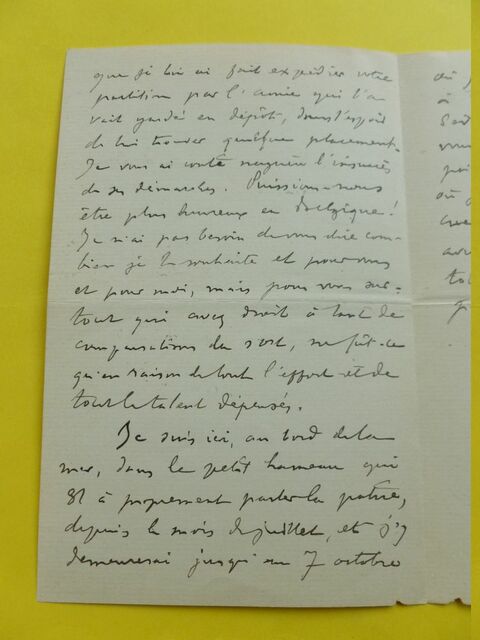 que je lui ai fait expédier votre
partition par l'amie qui l'a-
vait gardé en dépôt, dans l'espoir
de lui trouver quelque placement.
Je vous ai conté naguère l'insuccès
de ses démarches. Puissions-nous
être plus heureux en Belgique!
Je n'ai pas besoin de vous dire com-
bien je le souhaite et pour vous
et pour moi, mais pour vous sur-
tout qui avez droit à tant de
compensations du sort, ne fût-ce
qu'en raison de tout l'effort et de
tout le talent dépensés.
Je suis ici, au bord de la
mer, dans le petit hameau qui
est à proprement parler la patrie,
depuis le mois de juillet, et j'y
demeurerai jusqu'au 7 octobre
où
à
vous
où
tou